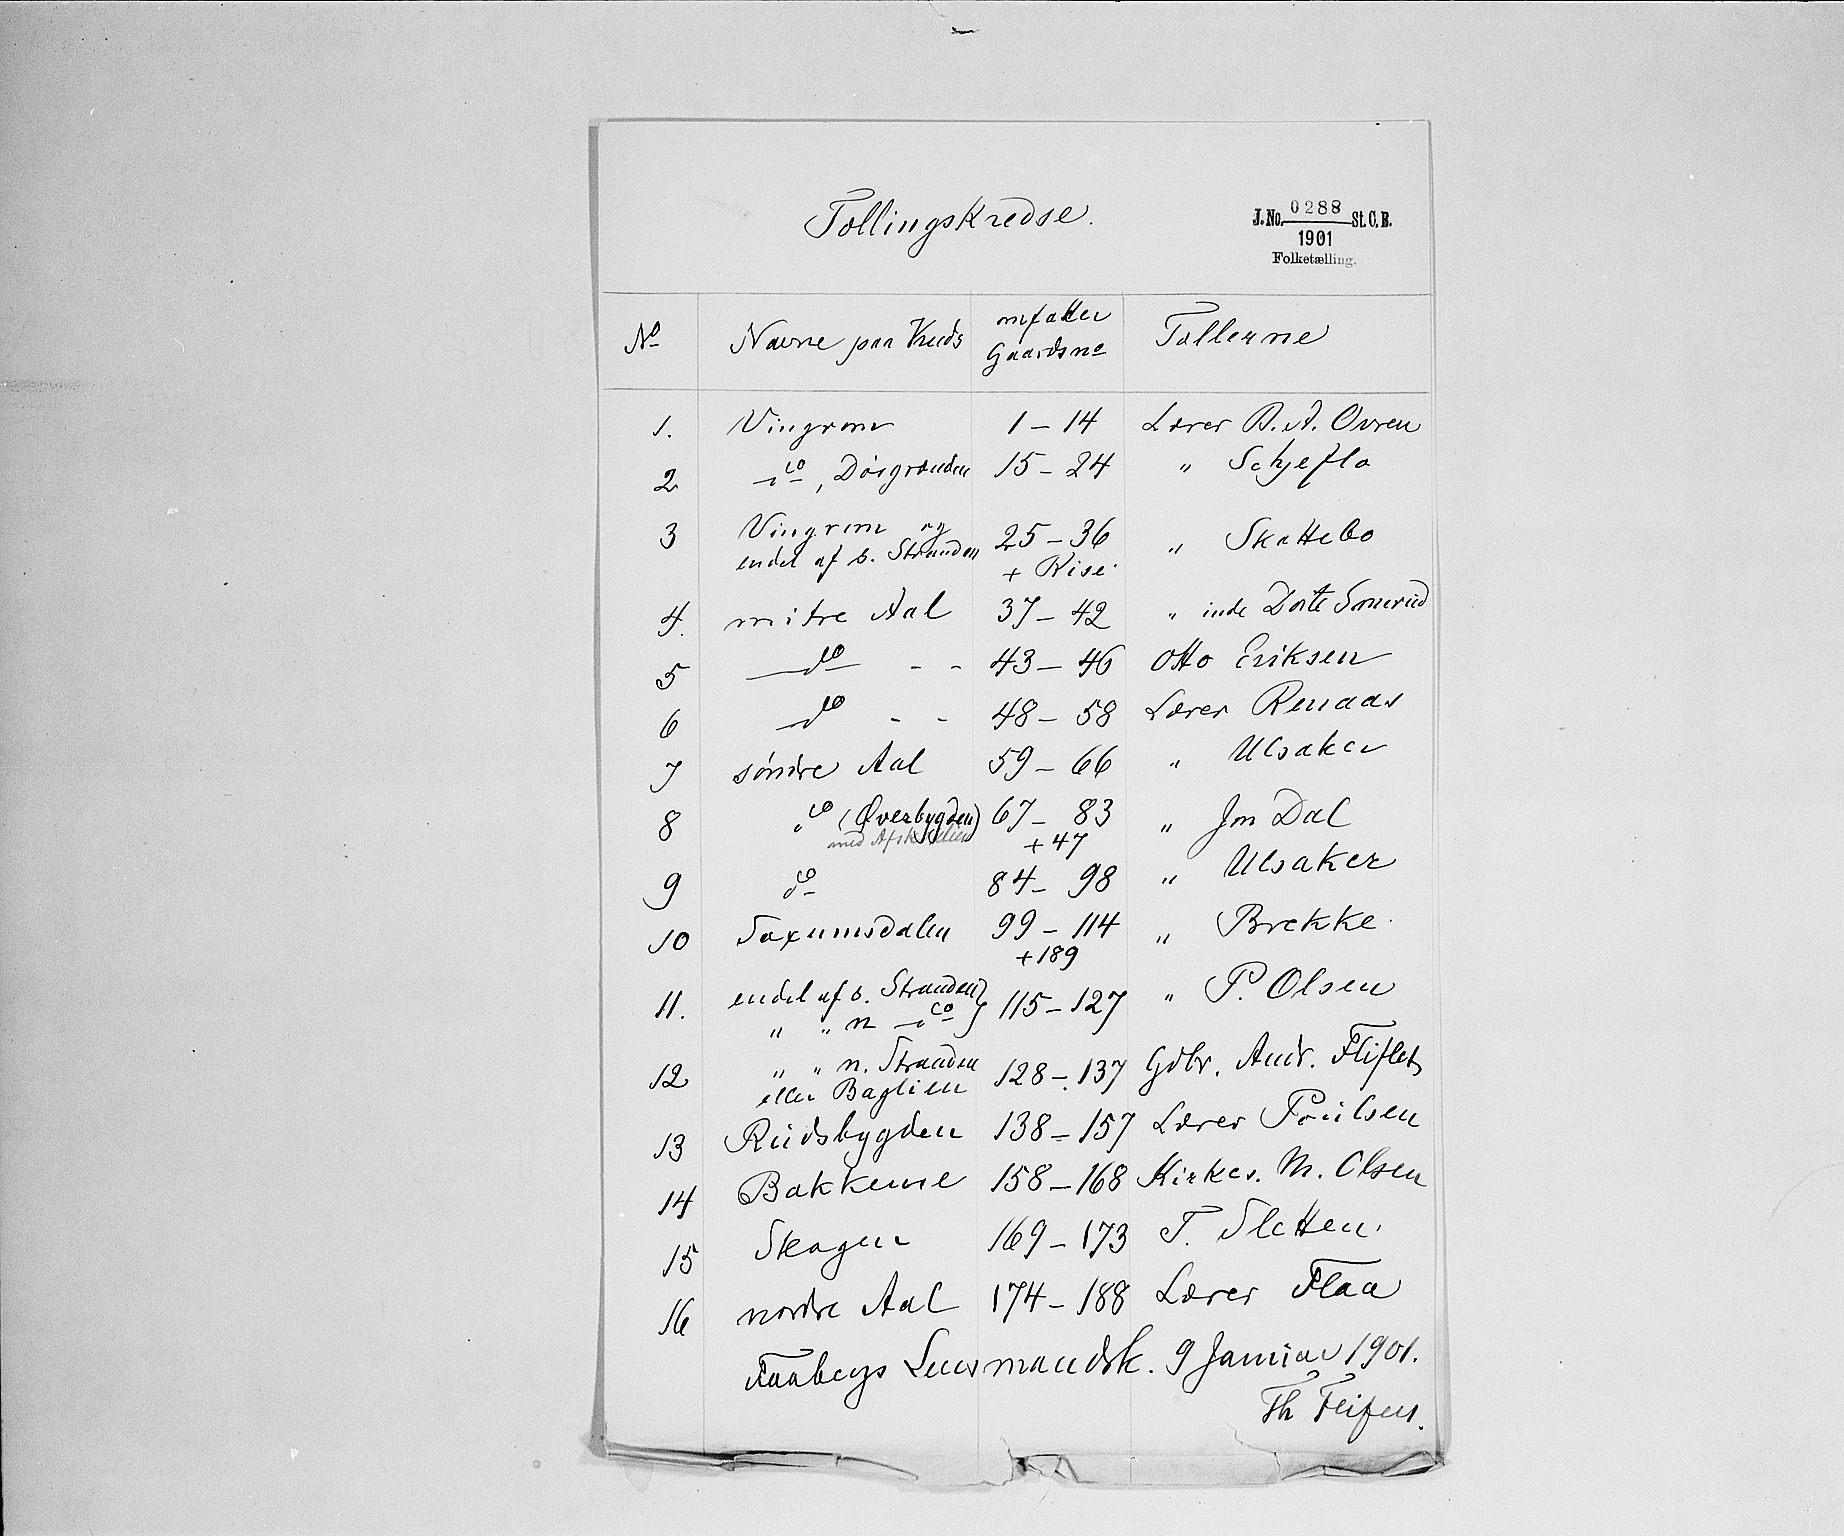 Tællingskredse.
J. No. 0288 St. C. B.
1901
Folketælling.
No Navne paa Kreds omfatter Gaardsno Tællerne
1. Vingrom 1 – 14 Lærer B. A. Ovren
2 do, Døsgrænden 15 – 24 " Schjeflo
3 Vingrom og 25 – 36 " Skattebo
endel af s. Stranden + Rise
4. mitre Aal 37 – 42 " inde
5 do - - 43 – 46 Otto Eriksen
6 do - - 48 – 58 Lærer Renaas
7 søndre Aal 59 – 66 " Ulsaker
8 do (Øverbygden) 67 – 83 " Jm Dal
med +47
9 do 84 – 98 " Ulsaker
10 Saxumsdalen 99 – 114 " Brekke.
+189
11. endel af s. Stranden } 115 – 127 " P. Olsen
" " n do }
12 " " n. Stranden 128 – 137 Gdbr. Andr. Fliflet
eller Baglien
13 Rudsbygden 138 – 157 Lærer Poulsen
14 Bakkerne 158 – 168 Kirkes. M. Olsen
15 Skogen 169 – 173 T. Sletten.
16 nordre Aal 174 – 188 Lærer Flaa
Faabergs Lensmandsk. 9 Januar 1901.
Th